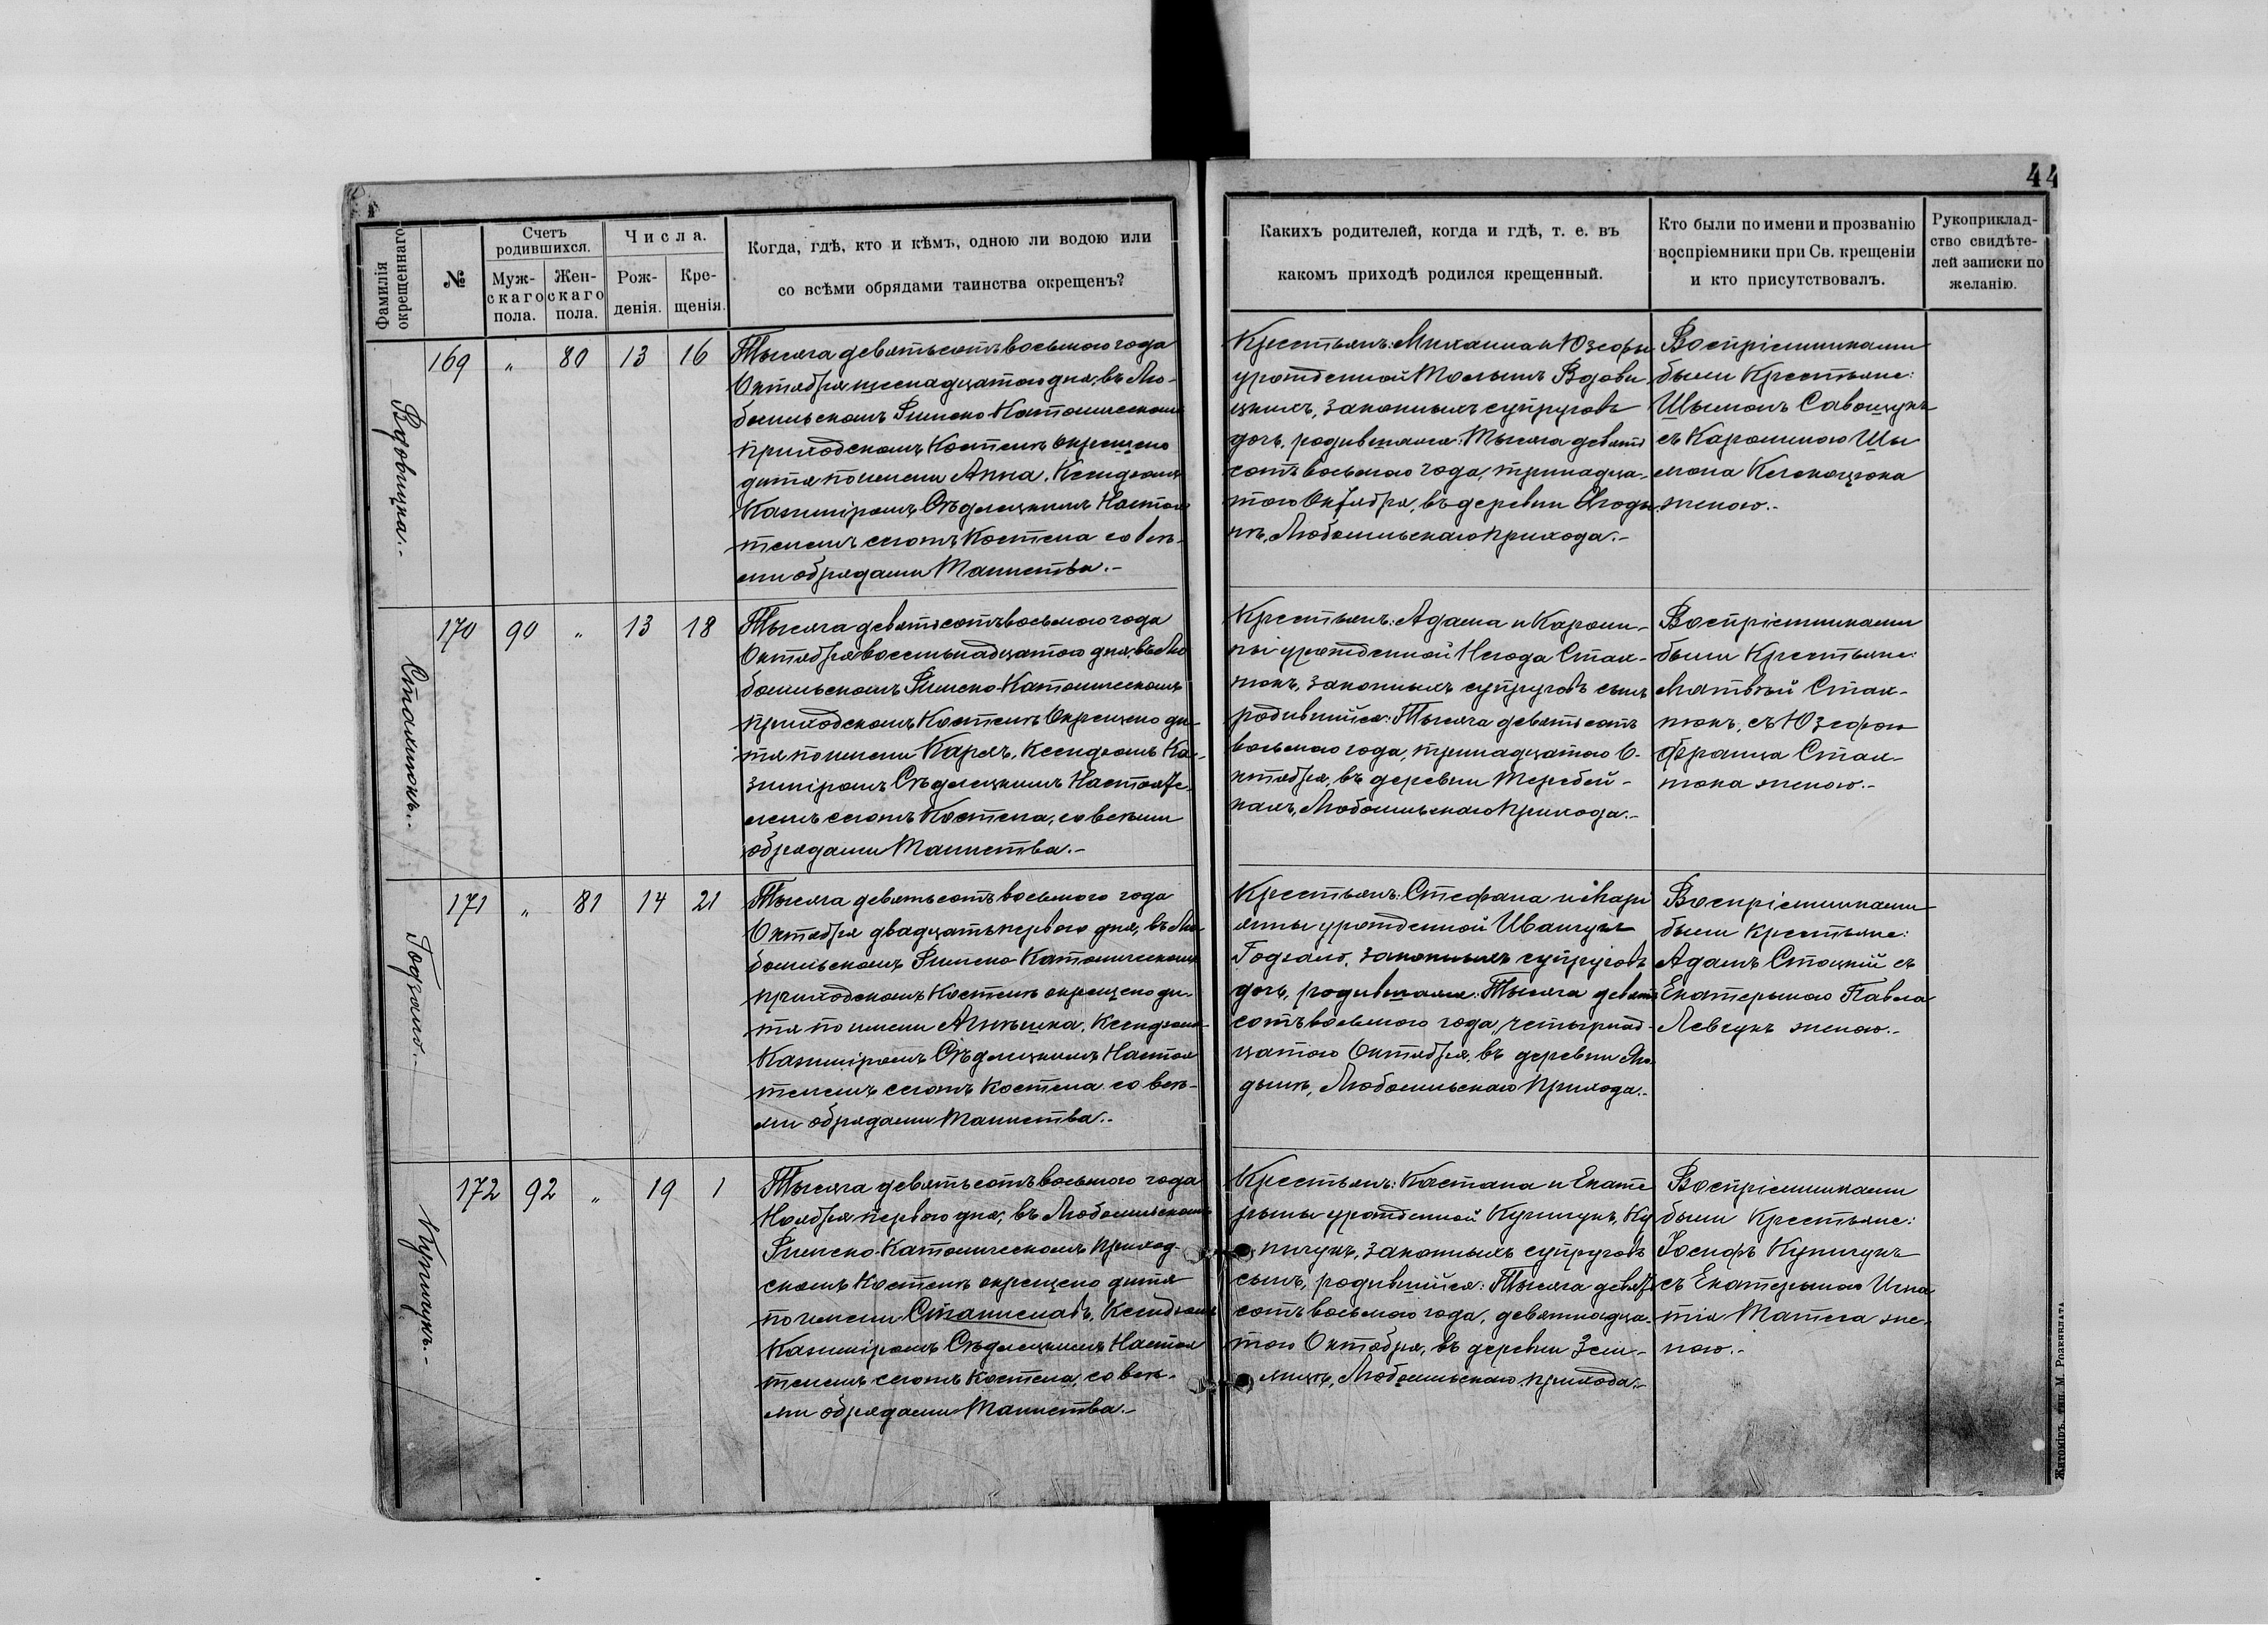 44
Фамилія окрещеннаго
№
Счетъ родившихся.
Муж-
скаго
пола.
Жен-
скаго
пола.
Числа.
Рож-
денія.
Кре-
щенія.
Когда, гдѣ, кто и кѣмъ, одною ли водою или
со всѣми обрядами таинства окрещенъ?
Какихъ родителей, когда и гдѣ, т. е. въ
какомъ приходѣ родился крещенный.
Кто были по имени и прозванію
воспріемники при Св. крещеніи
и кто присутствовалъ.
Рукоприклад-
ство свидѣте-
лей записки по
желанію.
169 " 80 13 16
Тысяча девятьсотъ восьмого года
Октября шеснадцатого дня, въ Лю-
бомльскомъ Римско-Католическомъ
приходскомъ Костелѣ окрещено
дитя по имени Анна, Ксендзомъ
Казиміромъ Сѣдлецкимъ Настоя
телемъ сегожъ Костела со всѣ-
ми обрядами Таинства.-
Крестьянъ: Михаила и Юзефы
урожденной Вдови
цкихъ, законныхъ супруговъ
дочь, родившаяся: Тысяча девять
сотъ восьмого года, тринадца-
того Октября, въ деревни
Любомльскаго прихода.-
Воспріемниками
были Крестьяне:
Шымонъ Савощукъ
съ Каролиною Шы
мона
женою.-
170 90 " 13 18
Стахнюкъ.-
Тысяча девятьсотъ восьмого года
Октября восемьнадцатого дня, въ Лю
бомльскомъ Римско-Католическомъ
приходскомъ Костелѣ Окрещено ди-
тя по имени Карлъ, Ксендзомъ Ка-
зиміромъ Сѣдлецкимъ Настояте
лемъ сегожъ Костела, со всѣми
обрядами Таинства.-
Крестьянъ: Адама и Кароли-
ны урожденной Стах-
нюкъ, законныхъ супруговъ сынъ
родившійся: Тысяча девятьсотъ
восьмого года, тринадцатого О-
ктября, въ деревни Теребей-
кахъ, Любомльскаго прихода.-
Воспріемниками
были Крестьяне:
Матвѣй Стах-
нюкъ, съ Юзефою
Франца Стах-
нюка женою.-
171 " 81 14 21
Тысяча девятьсотъ восьмого года
Октября двадцать перваго дня, въ Лю-
бомльскомъ Римско-Католическомъ
приходскомъ Костелѣ окрещено ди-
тя по имени Ксендзомъ
Казиміромъ Сѣдлецкимъ Настоя
телемъ сегожъ Костела со всѣ-
ми обрядами Таинства.-
Крестьянъ: Стефана и Марі
янны урожденной Иванчукъ
законныхъ супруговъ
дочь, родившаяся: Тысяча девять
сотъ восьмого года, четырнад-
цатого Октября, въ деревни
Любомльскаго прихода.-
Воспріемниками
были Крестьяне:
Адамъ Стоцкій съ
Екатерыною Павла
Левчукъ женою.-
172 92 " 19 1
Купичукъ.-
Тысяча девятьсотъ восьмого года
Ноября перваго дня, въ Любомльскомъ
Римско-Католическомъ приход-
скомъ Костелѣ окрещено дитя
по имени Станиславъ, Ксендзомъ
Казиміромъ Сѣдлецкимъ Настоя
телемъ сегожъ Костела, со всѣ-
ми обрядами Таинства.-
Крестьянъ: Каетана и Екате
рыны урожденной Купичукъ, Ку
пичукъ, законныхъ супруговъ
сынъ, родившійся: Тысяча девять
сотъ восьмого года, девятнадца-
того Октября, въ деревни Зем-
лицѣ, Любомльскаго прихода.-
Воспріемниками
были Крестьяне:
Іосифъ Купичукъ
съ Екатерыною Игна
тія же-
ною.-